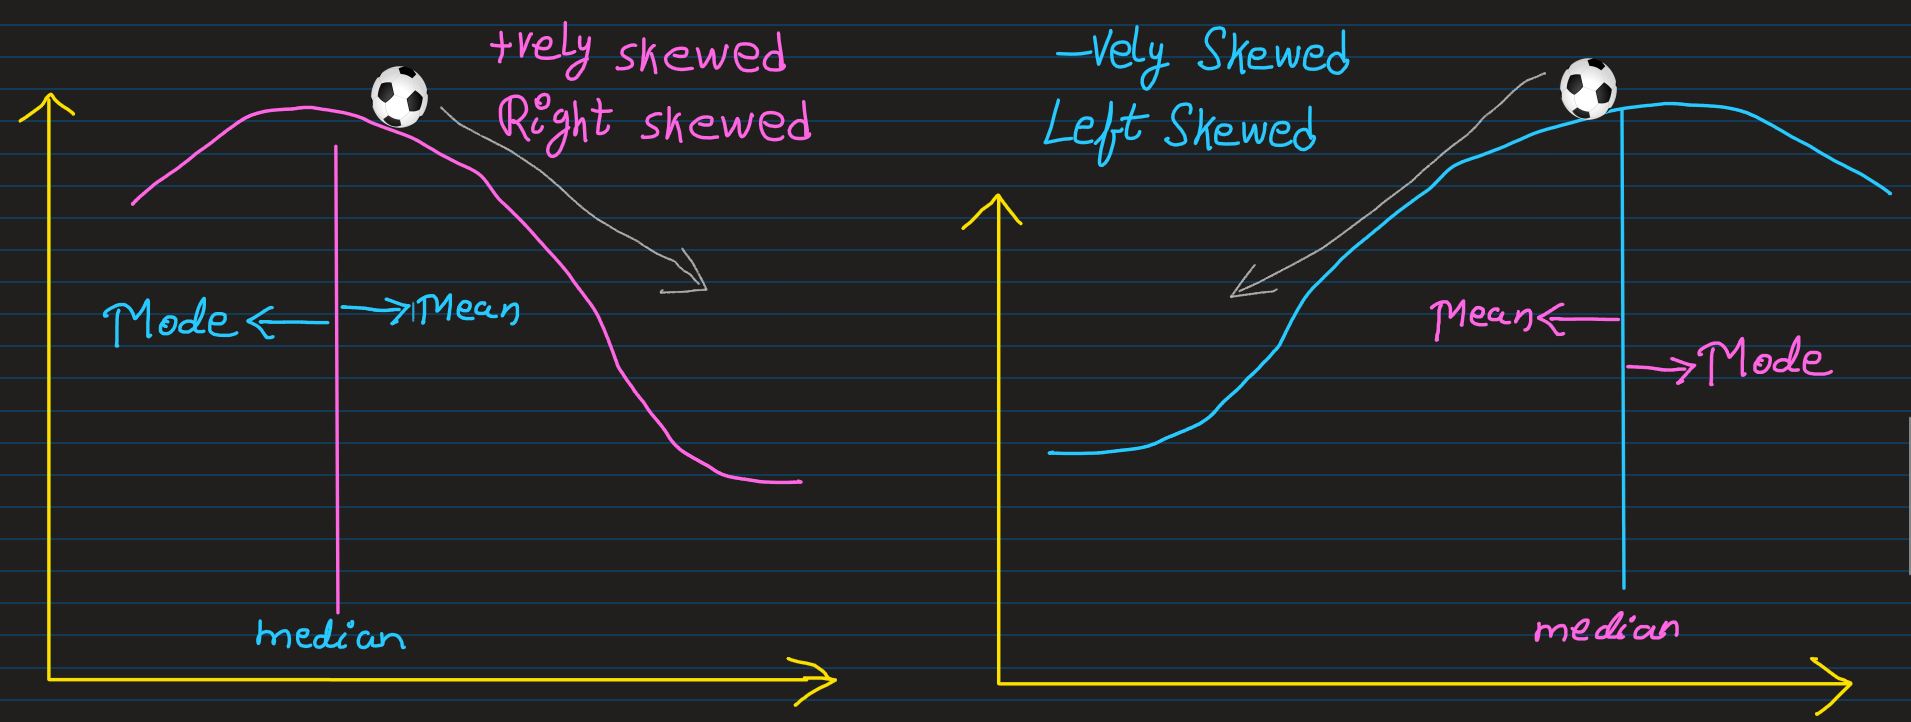 +vely skewed
Right skewed
Mode
Mean
median
-vely Skewed
Left Skewed
Mean
Mode
median